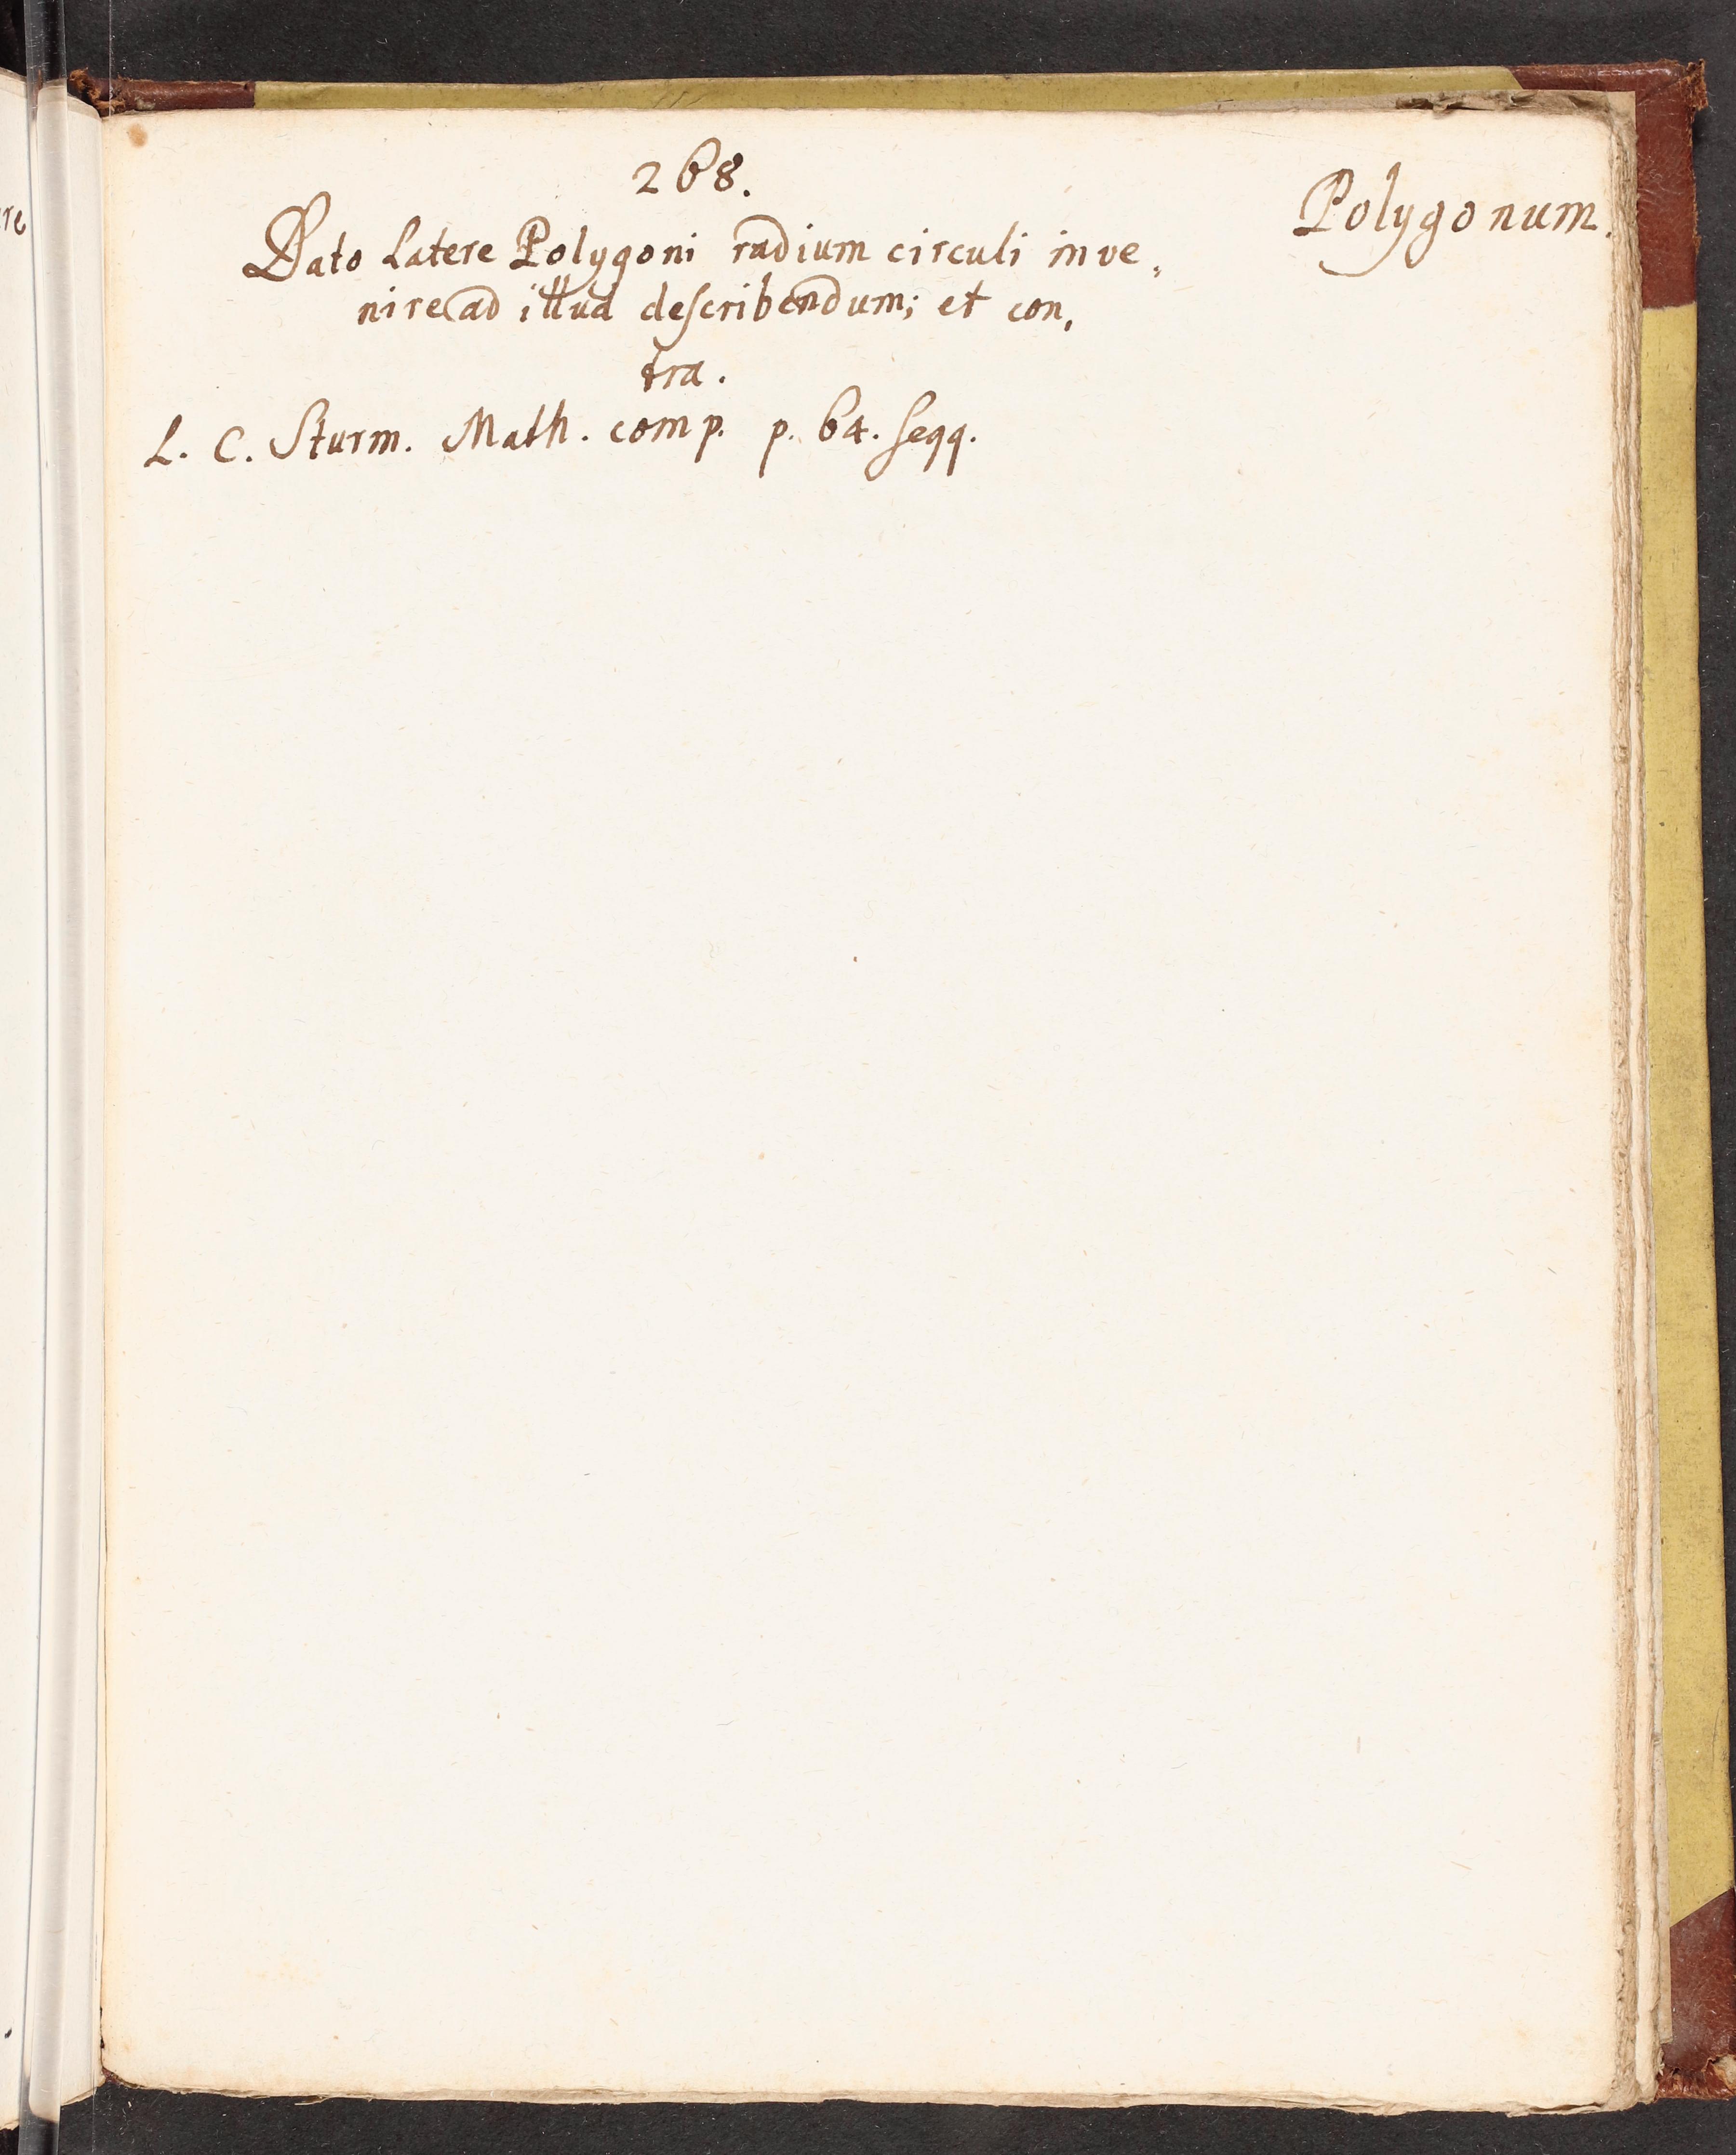 268.
Polygonum.
Dato Latere Polygoni radium circuli inve„
nire ad illud deſcribendum; et con„
tra.
L. C. Sturm. Math. comp. p. 64. ſeqq.
re